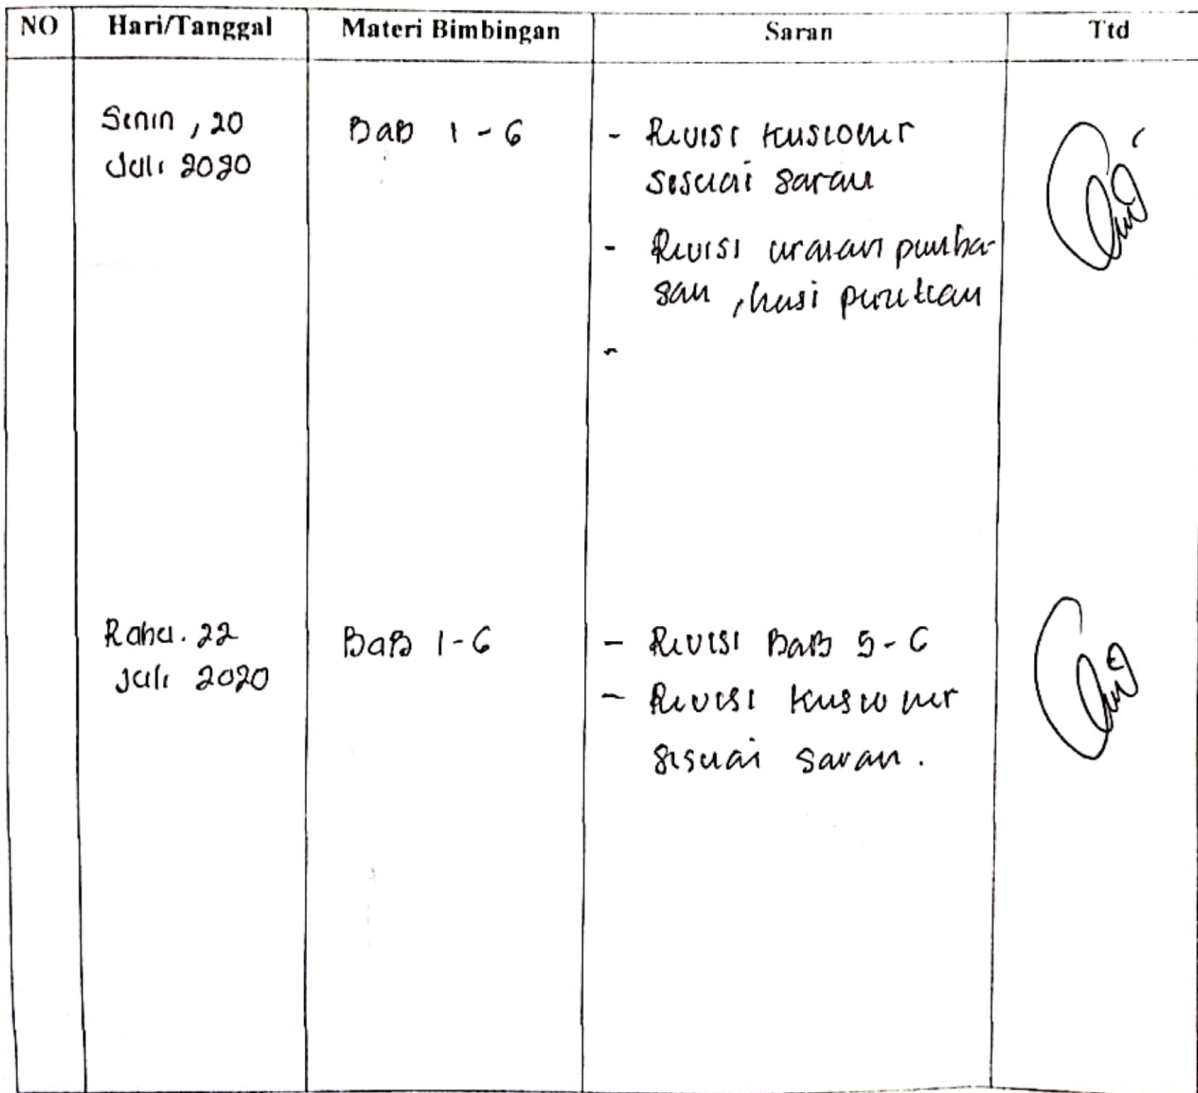 NO Hari/Tanggal Materi Bimbingan Saran Ttd
Senin, 20
Juli 2020
BAB 1 - 6
- Revisi kusioner
sesuai saran
- Revisi uraian pemba-
san, hasi
-
Rabu. 22
Juli 2020
BAB 1-6
- Revisi BAB 5-6
- Revisi kusioner
sesuai saran.